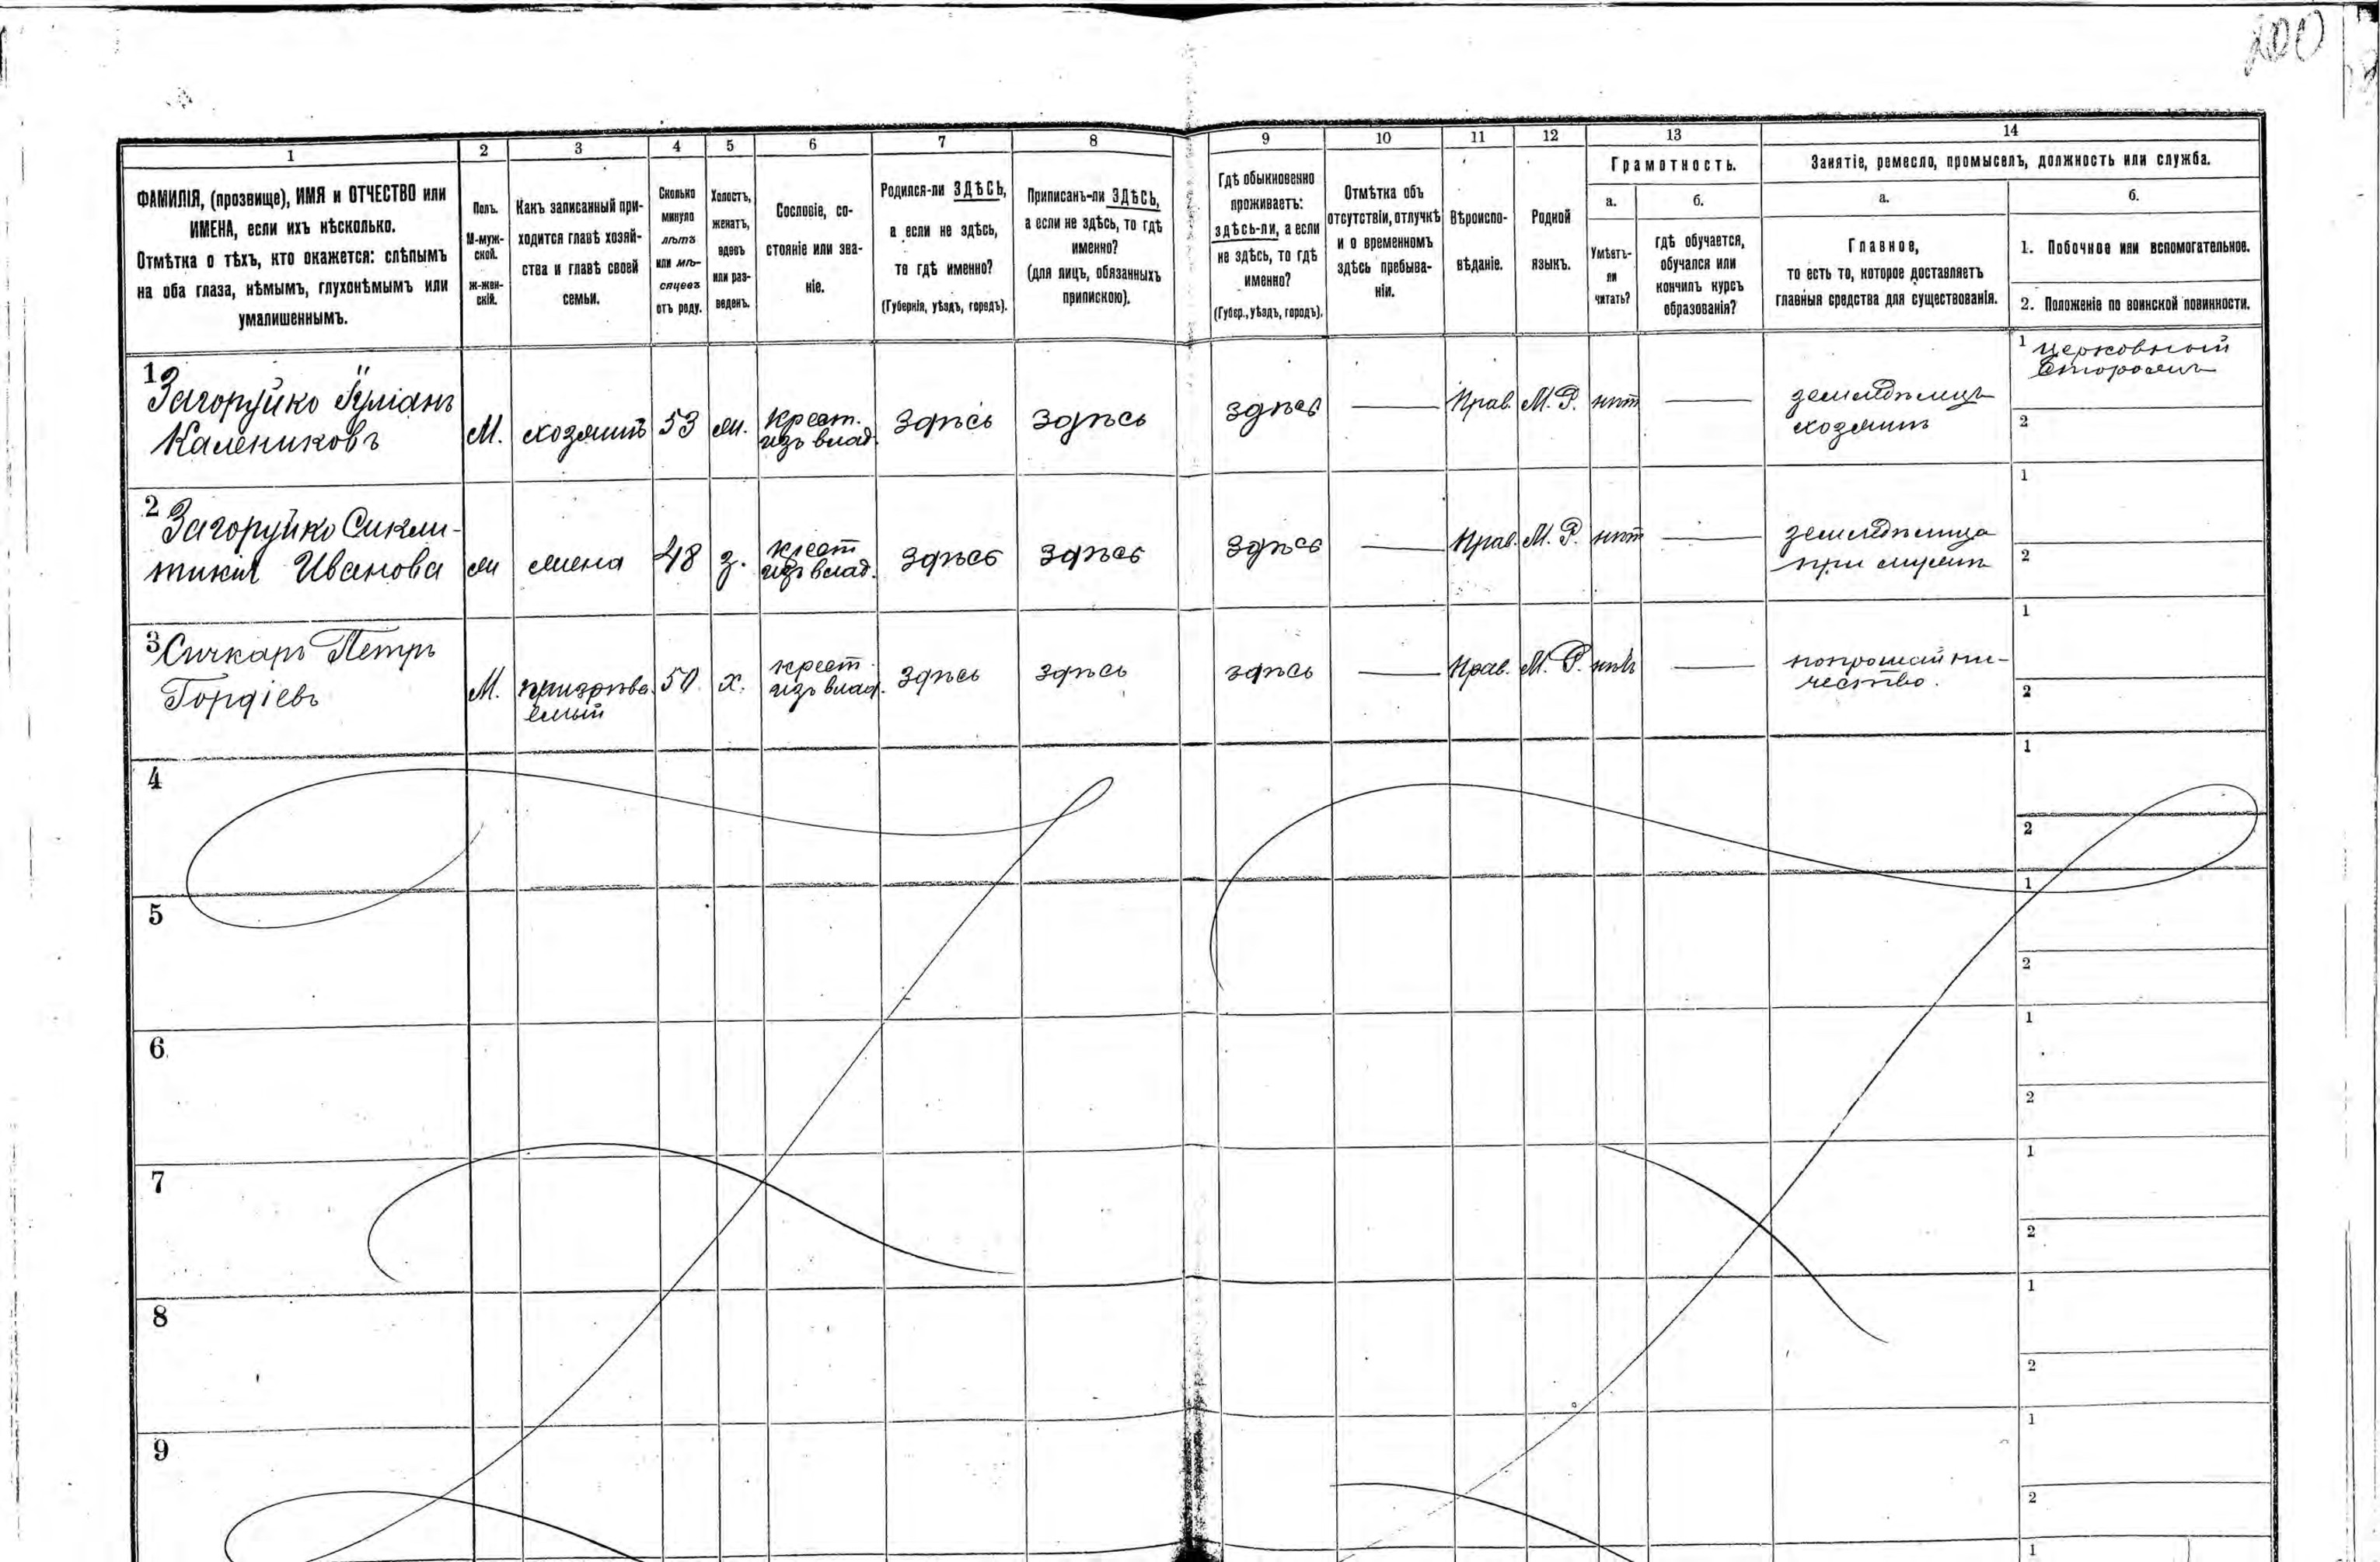 200
1 2 3 4 5 6 7 8 9 10 11 12 13 14
ФАМИЛІЯ, (прозвище), ИМЯ и ОТЧЕСТВО или
ИМЕНА, если ихъ нѣсколько.
Отмѣтка о тѣхъ, кто окажется: слѣпымъ
на оба глаза, нѣмымъ, глухонѣмымъ или
умалишеннымъ.
Полъ.
М-муж-
ской.
ж-жен-
скій.
Какъ записанный при-
ходится главѣ хозяй-
ства и главѣ своей
семьи.
Сколько
минуло
лѣтъ
или мѣ-
сяцевъ
отъ роду.
Холостъ,
женатъ,
вдовъ
или раз-
веденъ.
Сословіе, со-
стояніе или зва-
ніе.
Родился-ли ЗДѢСЬ,
а если не здѣсь,
то гдѣ именно?
(Губернія, уѣздъ, городъ).
Приписанъ-ли ЗДѢСЬ,
а если не здѣсь, то гдѣ
именно?
(для лицъ, обязанныхъ
припискою).
Гдѣ обыкновенно
проживаетъ:
здѣсь-ли, а если
не здѣсь, то гдѣ
именно?
(Губер., уѣздъ, городъ).
Отмѣтка объ
отсутствіи, отлучкѣ
и о временномъ
здѣсь пребыва-
ніи.
Вѣроиспо-
вѣданіе.
Родной
языкъ.
Грамотность.
а.
Умѣетъ-
ли
читать?
б.
гдѣ обучается,
обучался или
кончилъ курсъ
образованія?
Занятіе, ремесло, промыселъ, должность или служба.
а.
Главное,
то есть то, которое доставляетъ
главныя средства для существованія.
б.
1. Побочное или вспомогательное.
2. Положеніе по воинской повинности.
1 Загоруйко Іуліанъ
Калениковъ
М.
хозяинъ
53
ж.
крест.
изъ влад.
здѣсь
здѣсь
здѣсь
—
Прав.
М. Р.
нѣт
—
земледѣлецъ
хозяинъ
1 церковный
сторожъ
2
2 Загоруйко Сикли-
тикія Иванова
ж
жена
48
з.
крест
изъ влад.
здѣсь
здѣсь
здѣсь
—
Прав.
М. Р.
нѣт
—
земледѣлица
при мужѣ
1
2
3 Сичкаръ Петръ
Гордіевъ
М.
призрѣва-
емый
50
х.
крест.
изъ влад.
здѣсь
здѣсь
здѣсь
—
Прав.
М. Р.
нѣтъ
—
попрошайни-
чество.
1
2
4
1
2
5
1
2
6
1
2
7
1
2
8
1
2
9
1
2
1